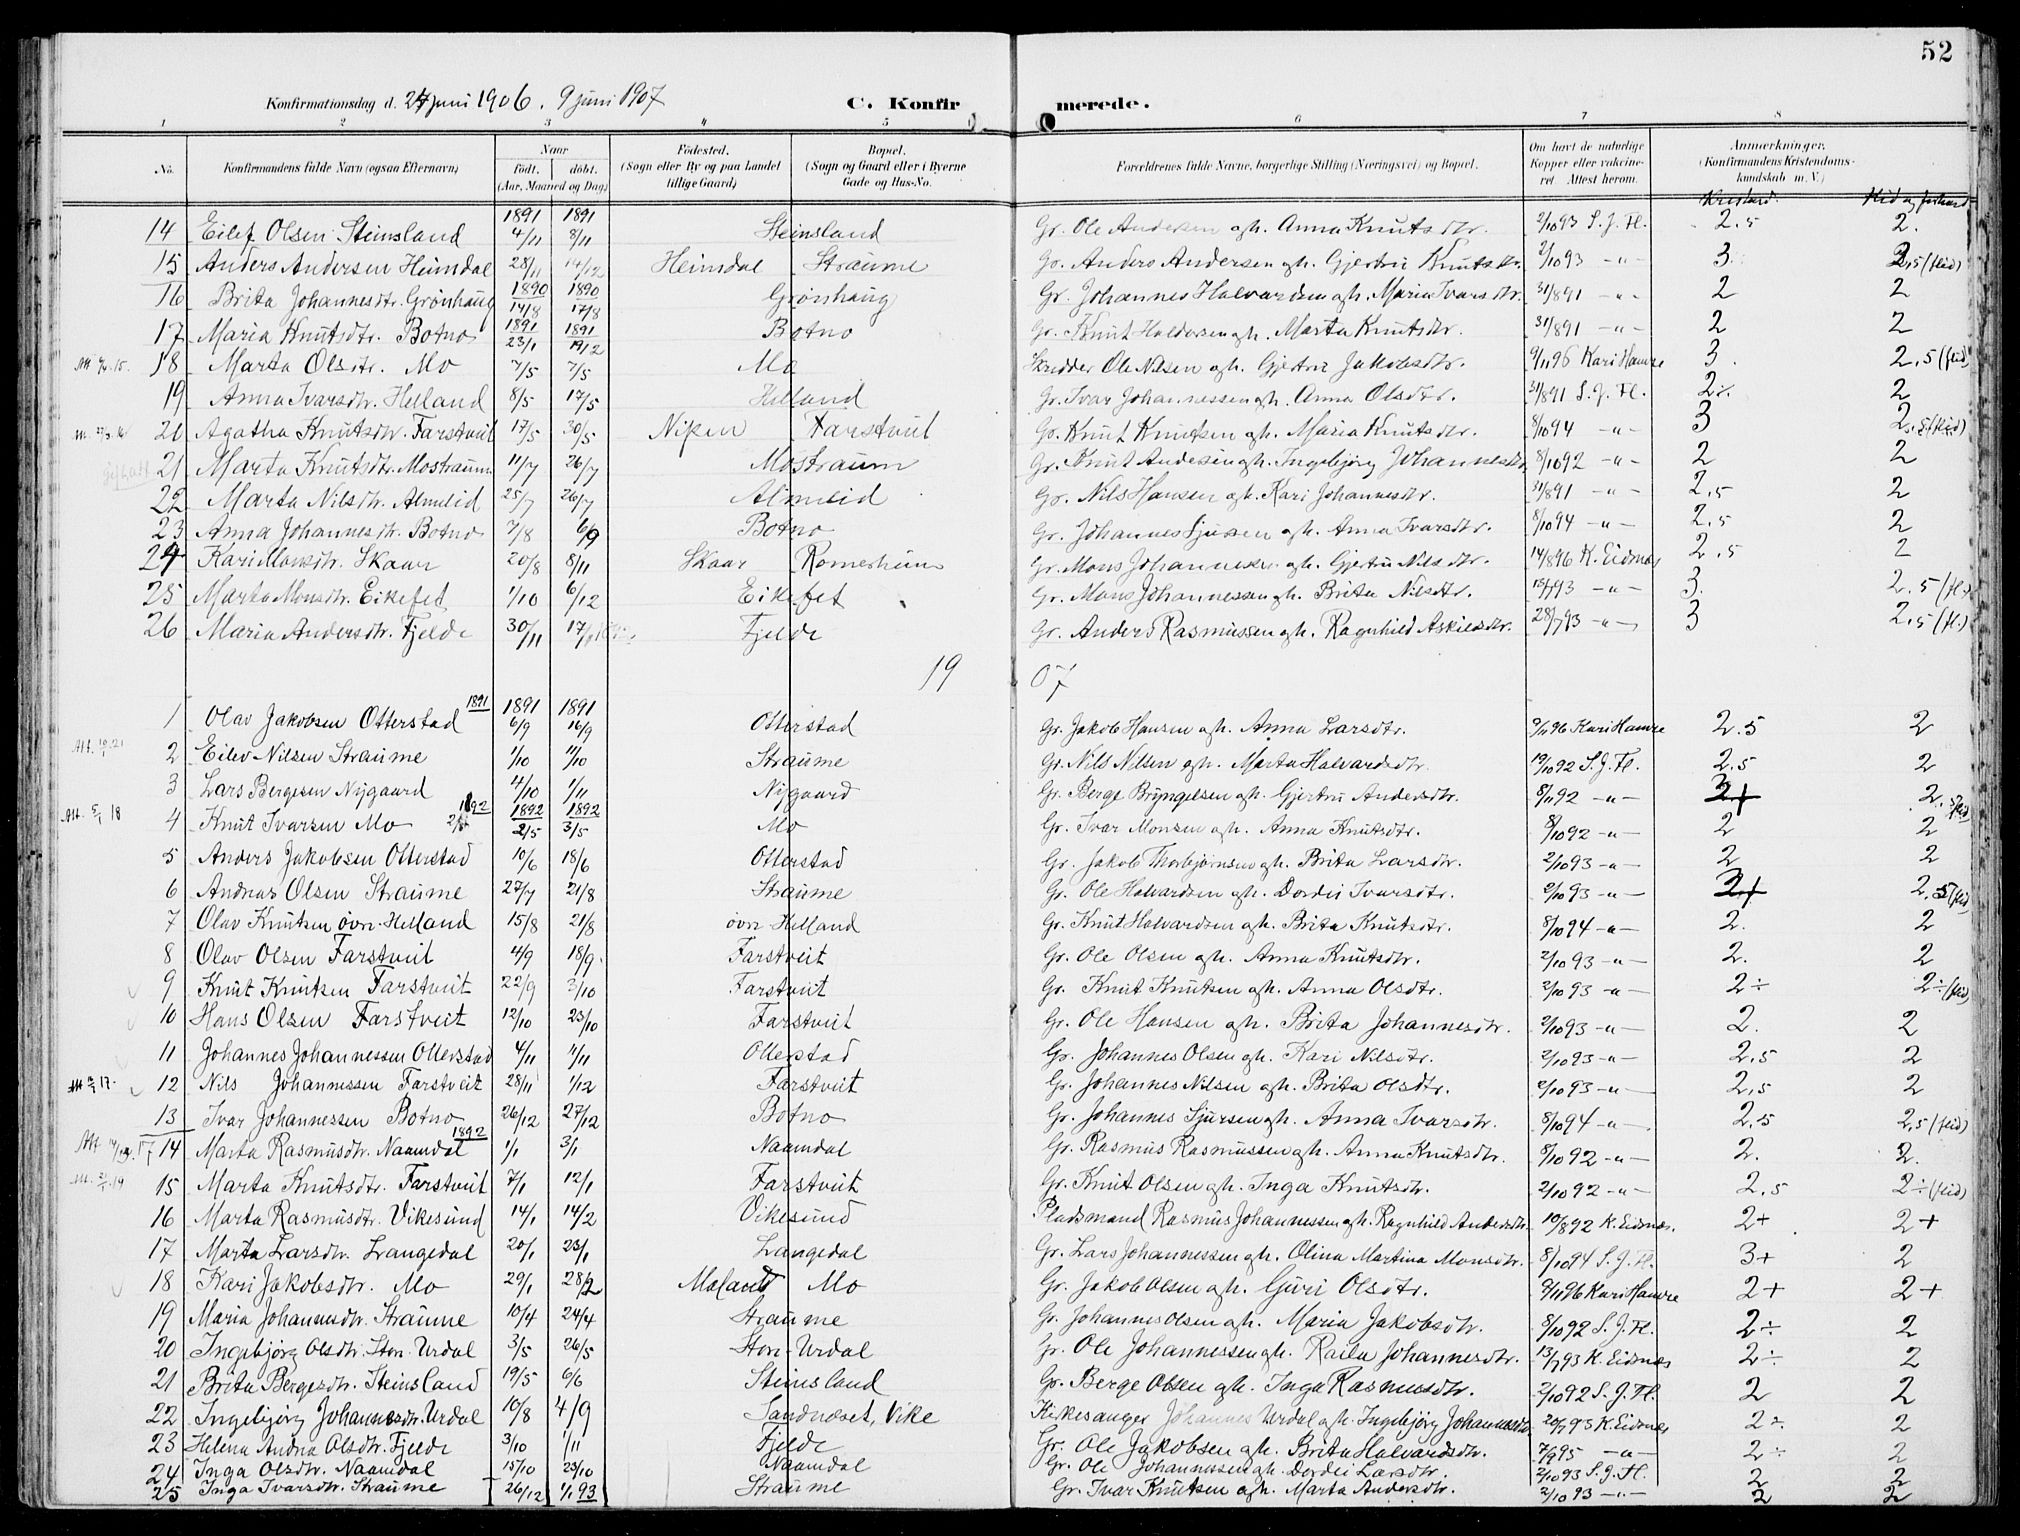 52
Konfirmationsdag d. 24 juni 1906. 9 juni 1907 C. Konfirmerede.
1 2 3 4 5 6 7 8
No. Konfirmandens fulde Navn (ogsaa Efternavn) Naar født. døbt. (Aar, Maaned og Dag) Fødested. (Sogn eller By og paa Landet tillige Gaard) Bopæl. (Sogn og Gaard eller i Byerne Gade og Hus-No. Forældrenes fulde Navne, borgerlige Stilling (Næringsvei) og Bopæl. Om havt de naturlige Kopper eller vakcineret. Attest herom. Anmærkninger. (Konfirmandens Kristendomskundskab m. V.)
Kristend. Flid og forhold
1891 1891
14 Eilef Olsen Steinsland 4/11 8/11 Steinsland Gr. Ole Andersen gh. Anna Knutsdtr. 2/10 93 S. J. Fl. 2.5 2.
15 Anders Andersen Heimdal 28/11 14/12 Heimdal Straume Gr. Anders Andersen gh. Gjertru Knutsdtr. 2/10 93 -"- 3. 2,5 (flid)
1890 1890
16 Brita Johannesdtr. Grønhaug 14/8 17/8 Grønhaug Gr. Johannes Halvardsen gh. Maria Ivarsdtr. 31/8 91 -"- 2 2
1891 1891
17 Maria Knutsdtr. Botno 23/1 19/2 Botno Gr. Knut Haldorsen gh. Marta Knutsdtr. 31/8 91 -"- 2 2
18 Marta Olsdtr. Mo 7/5 7/5 Mo Skrædder Ole Nilsen gh. Gjertru Jakobsdtr. 9/11 96 Kari Hamre 3. 2.5 (flid)
19 Anna Ivarsdtr. Helland 8/5 17/5 Helland Gr. Ivar Johannessen gh. Anna Olsdtr. 31/8 91 S. J. Fl. 2÷ 2
20 Agatha Knutsdtr. Farstveit 17/5 30/5 Nipen Farstveit Gr. Knut Knutsen gh. Maria Knutsdtr. 8/10 94 -"- 3 2.5 (flid)
21 Marta Knutsdtr. Mostraum 11/7 26/7 Mostraum Gr. Knut Andersen gh. Ingebjørg Johannesdtr. 8/10 92 -"- 2 2
22 Marta Nilsdtr. Almelid 25/7 26/7 Almelid Gr. Nils Hansen gh. Kari Johannesdtr. 31/8 91 -"- 2,5 2
23 Anna Johannesdtr. Botno 7/8 6/9 Botno Gr. Johannes Sjursen gh. Anna Ivarsdtr. 8/10 94 -"- 2.5 2
24 Kari Monsdtr. Skaar 20/8 8/11 Skaar Romerheim Gr. Mons Johannessen gh. Gjertru Nilsdtr. 14/8 96 K. Eidnes 2.5 2
25 Marta Monsdtr. Eikefet 1/10 6/12 Eikefet Gr. Mons Johannessen gh. Brita Nilsdtr. 15/7 93 -"- 3. 2.5 (fl.)
26 Maria Andersdtr. Fjelde 30/11 Fjelde Gr. Anders Rasmussen gh. Ragnhild Askildsdtr. 28/7 93 -"- 3 2,5 (fl.)
1907
1891 1891 1891
1 Olav Jakobsen Otterstad 6/9 16/9 Otterstad Gr. Jakob Hansen gh. Anna Larsdtr. 9/11 96 Kari Hamre 2.5 2
2 Eilev Nilsen Straume 1/10 11/10 Straume Gr. Nils Nilsen gh. Marta Halvardsdtr. 19/10 92 S. J. Fl. 2.5 2
3 Lars Bergesen Nygaard 4/10 1/11 Nygaard Gr. Berge Bryngelsen gh. Gjertru Andersdtr. 8/11 92 -"- 2+ 2.÷ flid
1892 1892 1892
Att. 5/1 18 4 Knut Ivarsen Mo 2/5 2/5 3/5 Mo Gr. Ivar Monsen gh. Anna Knutsdtr. 8/10 92 -"- 2 2
5 Anders Jakobsen Otterstad 10/6 18/6 Otterstad Gr. Jakob Thorbjørnsen gh. Brita Larsdtr. 2/10 93 -"- 2 2
6 Andreas Olsen Straume 27/7 21/8 Straume Gr. Ole Halvardsen gh. Dordei Ivarsdtr. 2/10 93 -"- 2+ 2.5 (flid)
7 Olav Knutsen øvr. Helland 15/8 21/8 øvr. Helland Gr. Knut Halvardsen gh. Brita Knutsdtr. 8/10 94 -"- 2. 2
8 Olav Olsen Farstveit 4/9 18/9 Farstveit Gr. Ole Olsen gh. Anna Knutsdtr. 2/10 93 -"- 2. 2
9 Knut Knutsen Farstveit 22/9 3/10 Farstveit Gr. Knut Knutsen gh. Anna Olsdtr. 2/10 93 -"- 2÷ 2÷ (flid)
10 Hans Olsen Farstveit 12/10 23/10 Farstveit Gr. Ole Hansen gh. Brita Johannesdtr. 2/10 93 -"- 2. 2
11 Johannes Johannessen Otterstad 4/11 11/11 Otterstad Gr. Johannes Olsen gh. Kari Nilsdtr. 2/10 93 -"- 2,5 2
12 Nils Johannessen Farstveit 28/11 1/12 Farstveit Gr. Johannes Nilsen gh. Brita Olsdtr. 2/10 93 -"- 2,5 2
13 Ivar Johannessen Botno 26/12 27/12 Botno Gr. Johannes Sjursen gh. Anna Ivarsdtr. 8/10 94 -"- 2,5 2,5 (flid)
1892
14 Marta Rasmusdtr. Naamdal 1/1 3/1 Naamdal Gr. Rasmus Rasmussen gh. Anna Knutsdtr. 8/10 92 -"- 2. 2.
15 Marta Knutsdtr. Farstveit 7/1 12/1 Farstveit Gr. Knut Olsen gh. Inga Knutsdtr. 2/10 92 -"- 2,5 2÷ (flid)
16 Marta Rasmusdtr. Vikesund 14/1 14/2 Vikesund Pladsmand Rasmus Johannessen gh. Ragnhild Andersdtr. 10/8 92 K. Eidnes 2+ 2+
17 Marta Larsdtr. Langedal 20/1 23/1 Langedal Gr. Lars Johannessen gh. Olina Martina Monsdtr. 8/10 94 S. J. Fl. 3+ 2
18 Kari Jakobsdtr. Mo 29/1 28/2 Moland Mo Gr. Jakob Olsen gh. Guri Olsdtr. 9/11 96 Kari Hamre 2+ 2+
19 Maria Johannesdtr. Straume 10/4 24/4 Straume Gr. Johannes Olsen gh. Maria Jakobsdtr. 8/10 92 S. J. Fl. 2÷ 2
20 Ingebjørg Olsdtr. Stor-Urdal 3/5 26/5 Stor-Urdal Gr. Ole Johannessen gh. Raila Johannesdtr. 13/7 93 K. Eidnes 2÷ 2
21 Brita Bergesdtr. Steinsland 19/5 6/6 Steinsland Gr. Berge Olsen gh. Inga Rasmusdtr. 2/10 92 S. J. Fl. 2 2
22 Ingebjørg Johannesdtr. Urdal 10/8 4/9 Sandnæset, Vike Kirkesanger Johannes Urdal gh. Ingebjørg Johannesdtr. 20/7 93 K. Eidnes 2÷ 2
23 Helena Andrea Olsdtr. Fjelde 3/10 1/11 Fjelde Gr. Ole Jakobsen gh. Brita Halvardsdtr. 7/9 95 -"- 2÷ 2
24 Inga Olsdtr. Naamdal 15/10 23/10 Naamdal Gr. Ole Johannessen gh. Dordei Larsdtr. 2/10 93 S. J. Fl. 2 2
25 Inga Ivarsdtr. Straume 26/12 1/1 93 Straume Gr. Ivar Knutsen gh. Marta Andersdtr. 2/10 93 -"- 2 2